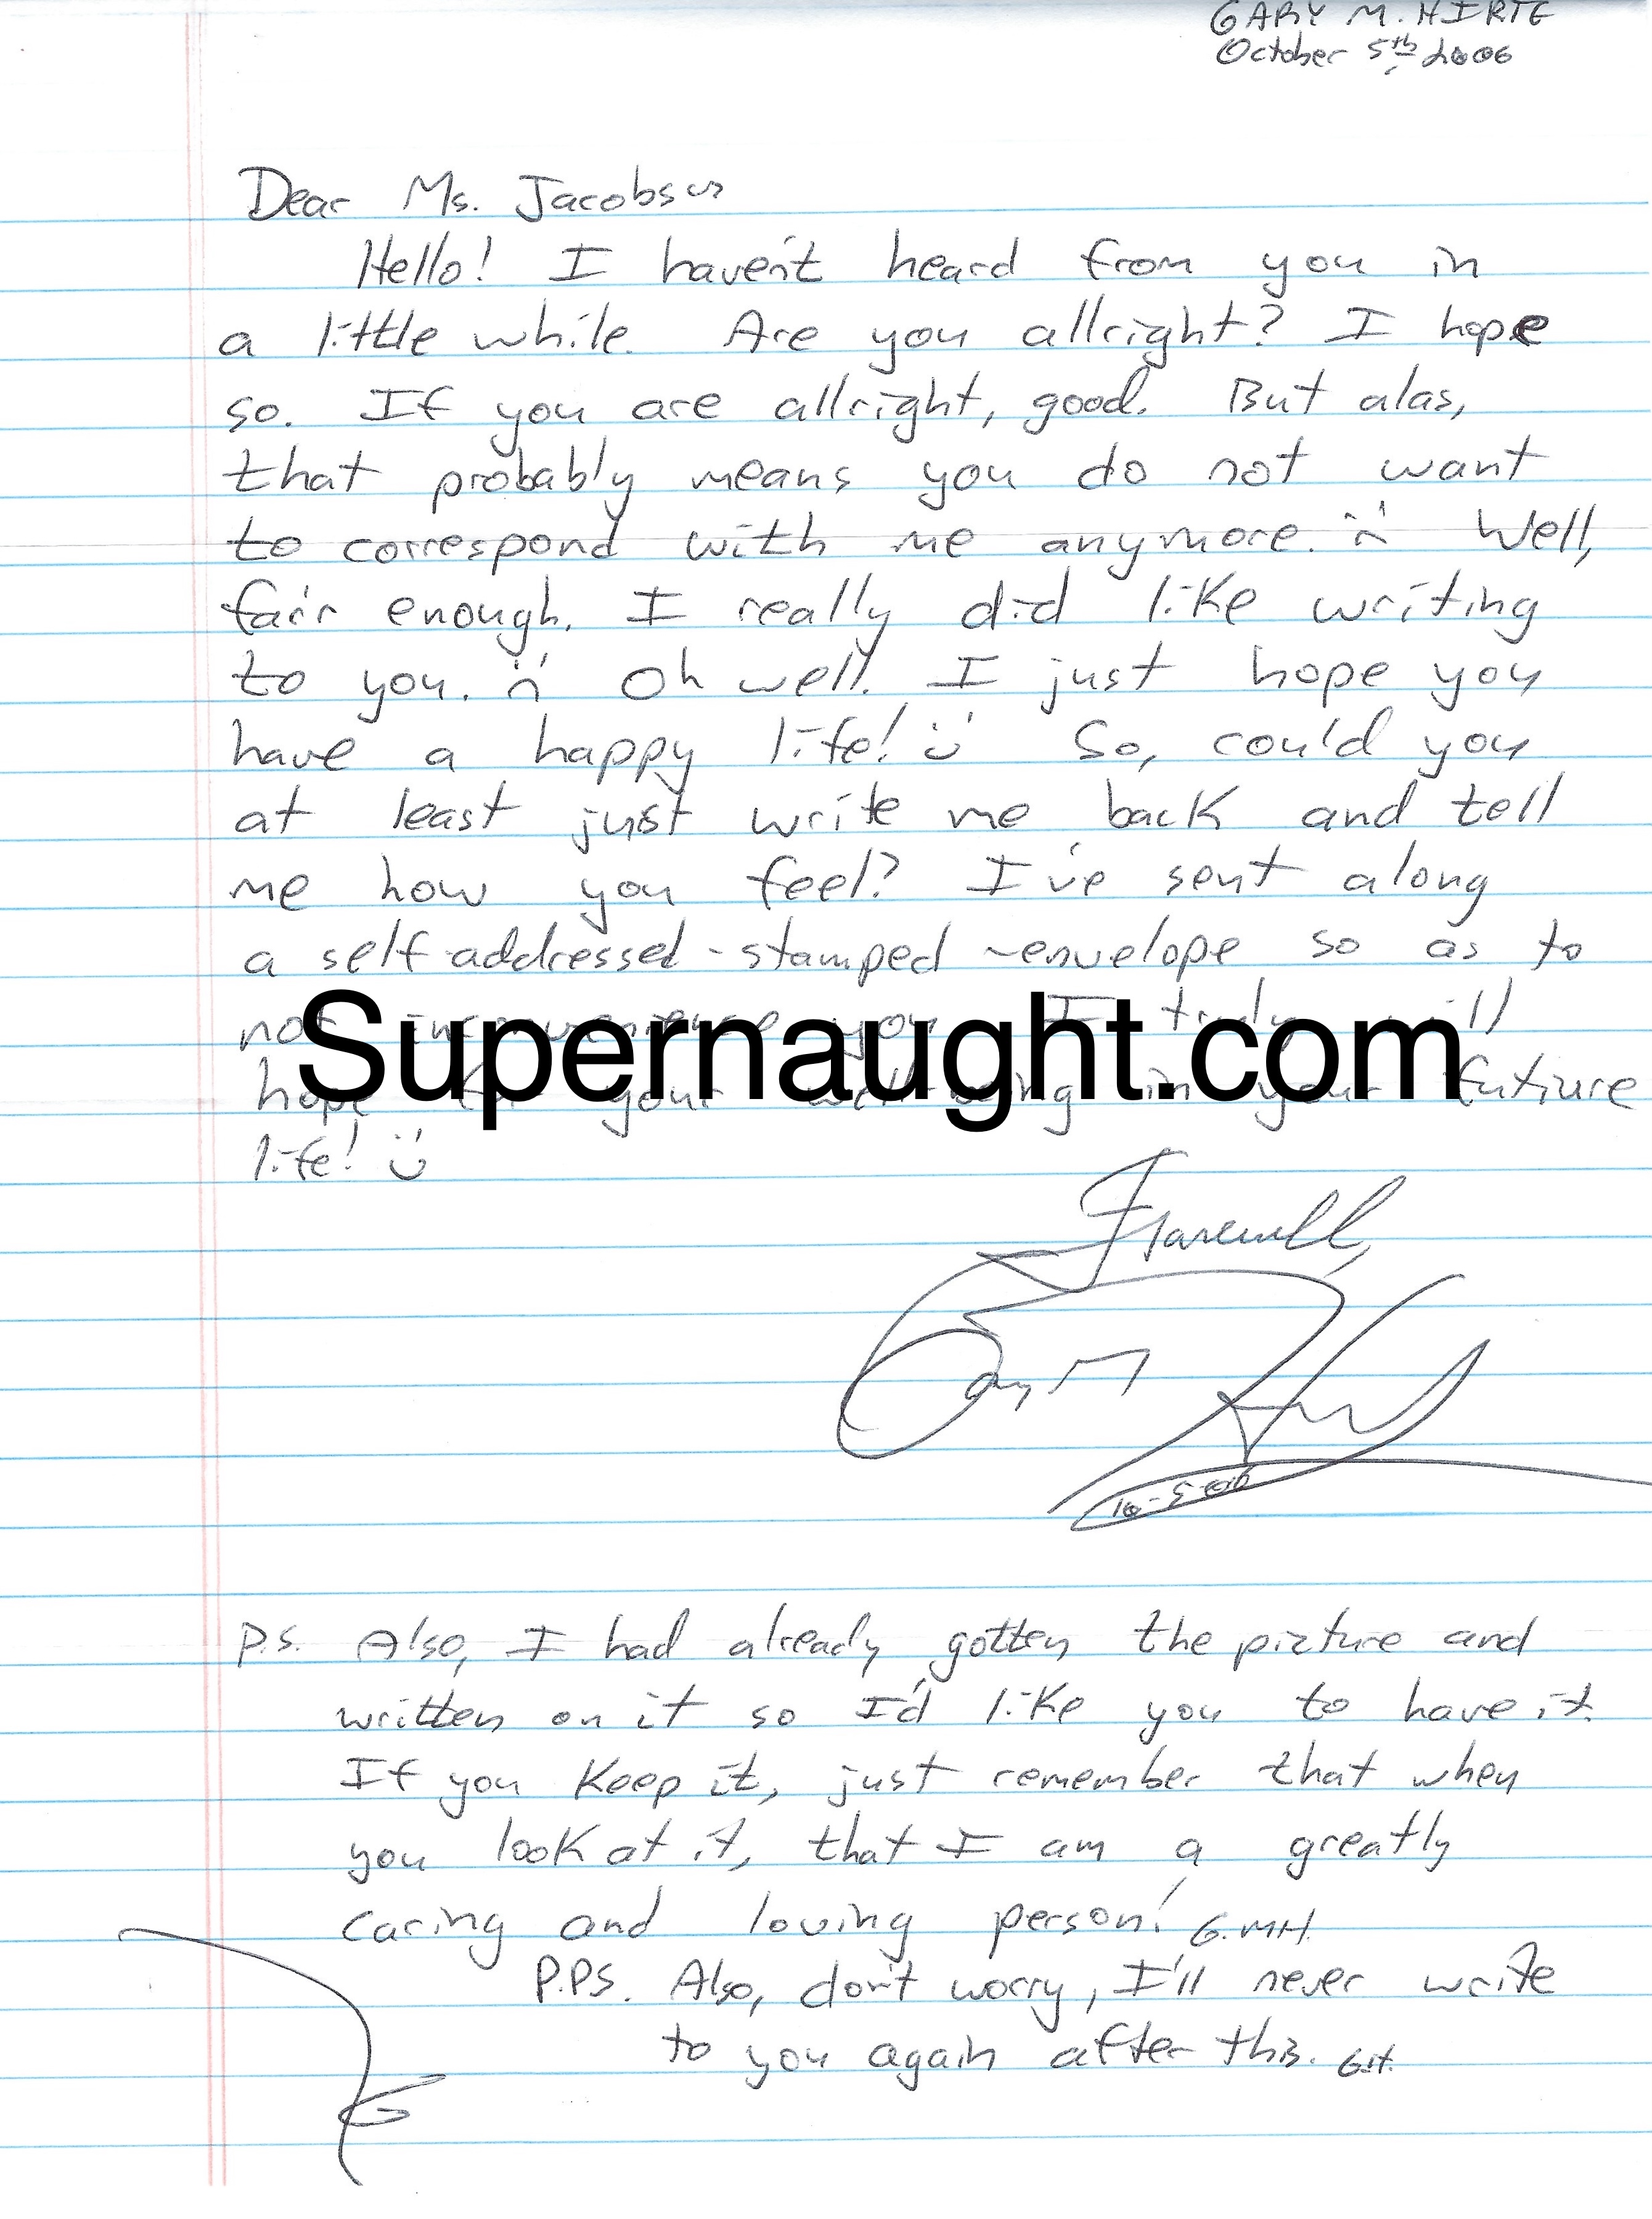 GARY M. HIRTE
October 5th 2006
Dear Ms. Jacobson
Hello! I haven't heard from you in
a little while. Are you allright? I hope
so. If you are allright, good. But alas,
that probably means you do not want
to correspond with me anymore. :( Well,
fair enough. I really did like writing
to you. :( Oh well. I just hope you
have a happy life! :) So, could you
at least just write me back and tell
me how you feel? I've sent along
a self-addressed-stamped-envelope so as to
not inconvenience you. I truly will
Supernaught.com
hope for your well being in your futiure
life! :)
Farewell,
Gary M Hirte
10-5-06
P.S. Also, I had already gotten the picture and
written on it so I'd like you to have it.
If you keep it, just remember that when
you look at it, that I am a greatly
caring and loving person! G.MH.
P.P.S. Also, don't worry, I'll never write
to you again after this. G.H.